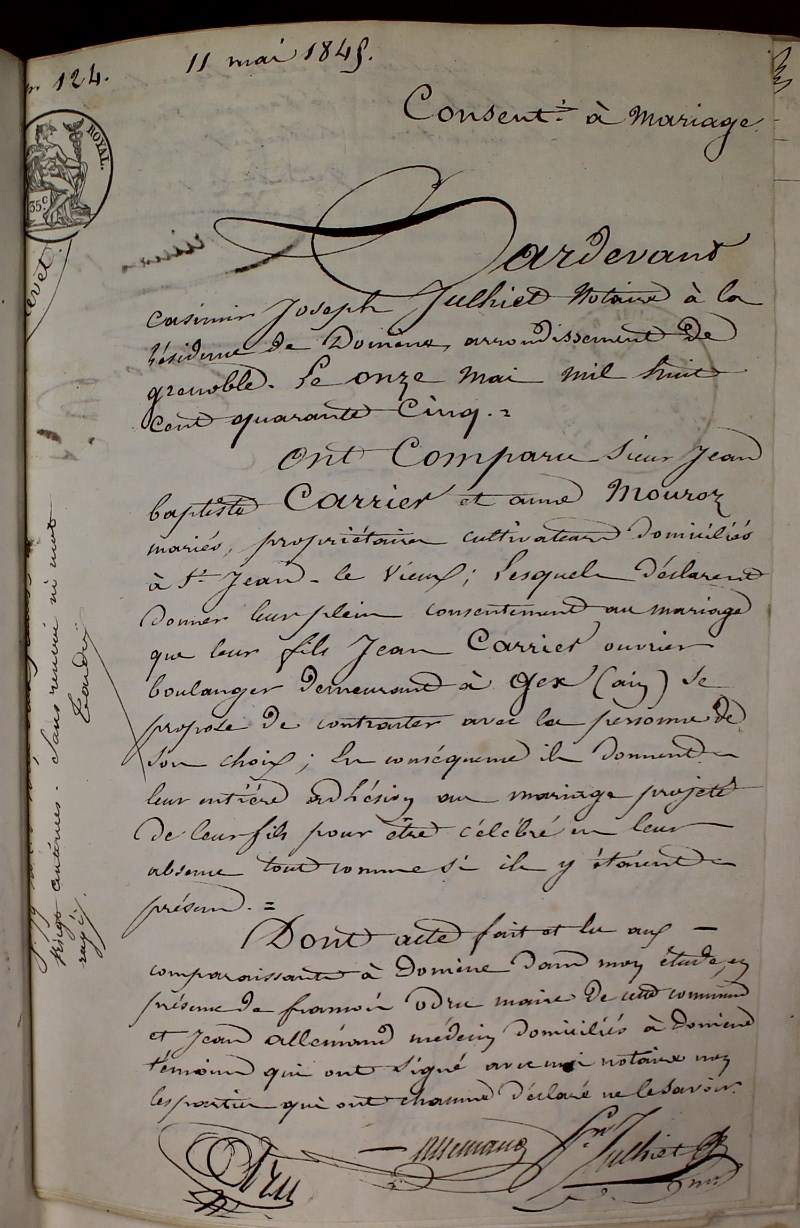 124.
11 mai 1845.
Consent.t à Mariage
ROYAL.
35c
Pardevant
Casimir Joseph Julhiet Notaire à la
résidence de Domène, arrondissement de
grenoble. Le onze mai mil huit
cent quarante cinq. =
Ont Comparu Sieur Jean
baptiste Carrier et anne Mouroz
mariés, propriétaires cultivateurs domiciliés
à St Jean-le Vieux; Lesquels déclarent
donner leur plein consentement au mariage
que leur fils Jean Carrier ouvrier
boulanger demeurant à Gex (ain) se
propose de contracter avec la personne de
son choix; En conséquence ils donnent
leur entière adhésion au mariage projeté
de leur fils pour être célébré en leur
absence tout comme s'ils y étaient
présens. =
Dont acte fait et lu aux
comparaissants à Domène dans mon étude, en
présence de françois Odru maire de cette commune
et Jean allemand médecin domiciliés à Domène
témoins qui ont signé avec moi notaire non
les parties qui ont chacune déclaré ne le savoir.
Odru
allemand
Julhiet
centimes. Sans renvoi ni mot
rayé.